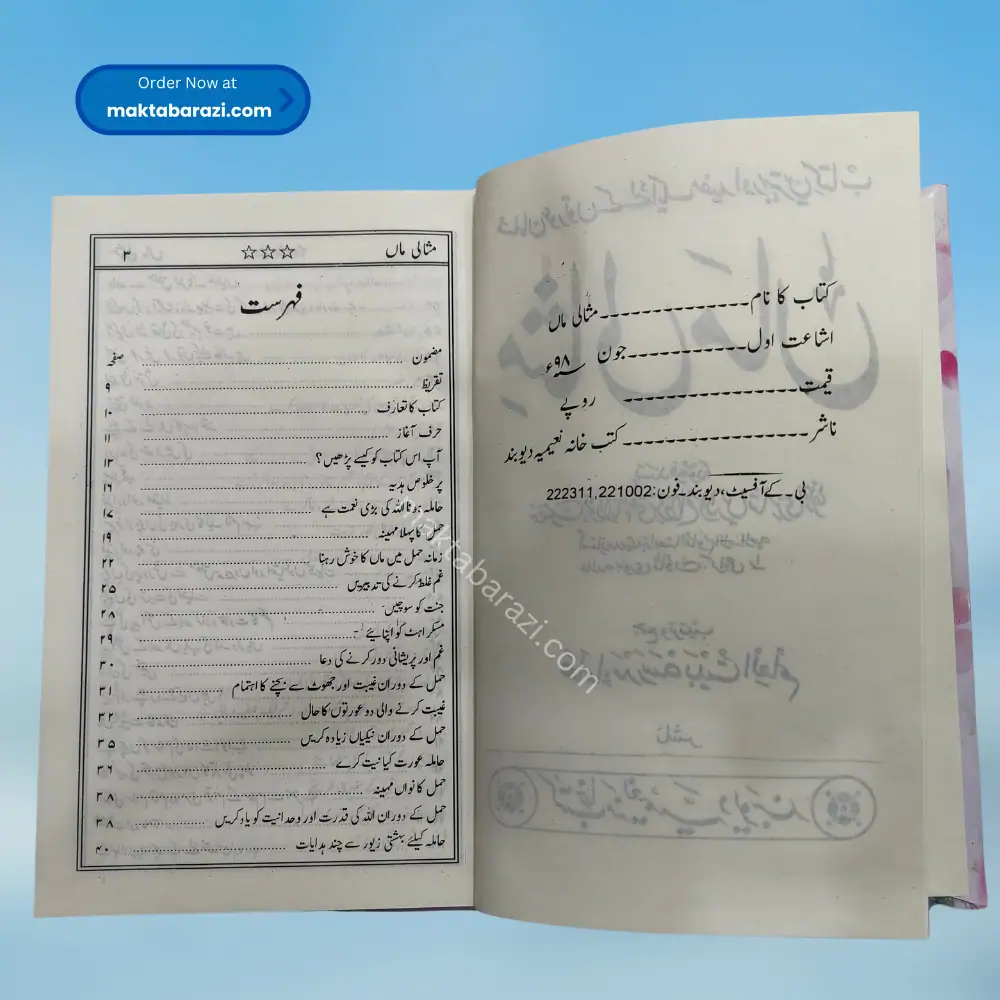 Order Now at
maktabarazi.com
کتاب کا نام------------مثالی ماں
اشاعت اول-----------جون ۹۸ء
قیمت----------------- روپے
ناشر------------------ کتب خانہ نعیمیہ دیوبند
بی۔کے آفسیٹ، دیوبند۔فون:222311,221002
مثالی ماں ☆☆☆ ۳
فہرست
مضمون ........ صفحہ
تقریظ ........ ۹
کتاب کا تعارف ........ ۱۰
حرف آغاز ........ ۱۱
آپ اس کتاب کو کیسے پڑھیں؟ ........ ۱۳
پر خلوص ہدیہ ........ ۱۶
حاملہ ہونا اللہ کی بڑی نعمت ہے ........ ۱۷
حمل کا پہلا مہینہ ........ ۱۹
زمانہ حمل میں ماں کا خوش رہنا ........ ۲۲
غم غلط کرنے کی تدبیریں ........ ۲۵
جنت کو سوچیں ........ ۲۸
مسکراہٹ کو اپنایئے ........ ۲۹
غم اور پریشانی دور کرنے کی دعا ........ ۳۰
حمل کے دوران غیبت اور جھوٹ سے بچنے کا اہتمام ........ ۳۱
غیبت کرنے والی دو عورتوں کا حال ........ ۳۲
حمل کے دوران نیکیاں زیادہ کریں ........ ۳۵
حاملہ عورت کیا نیت کرے ........ ۳۶
حمل کا نواں مہینہ ........ ۳۸
حمل کے دوران اللہ کی قدرت اور وحدانیت کو یاد کریں ........ ۳۸
حاملہ کیلئے بہشتی زیور سے چند ہدایات ........ ۴۰
maktabarazi.com